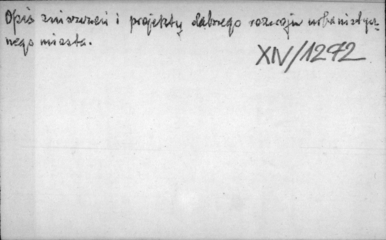 Opis zniszczeń i projekty dalszego rozwoju urbanistycz-
nego miasta.
XIV/1272